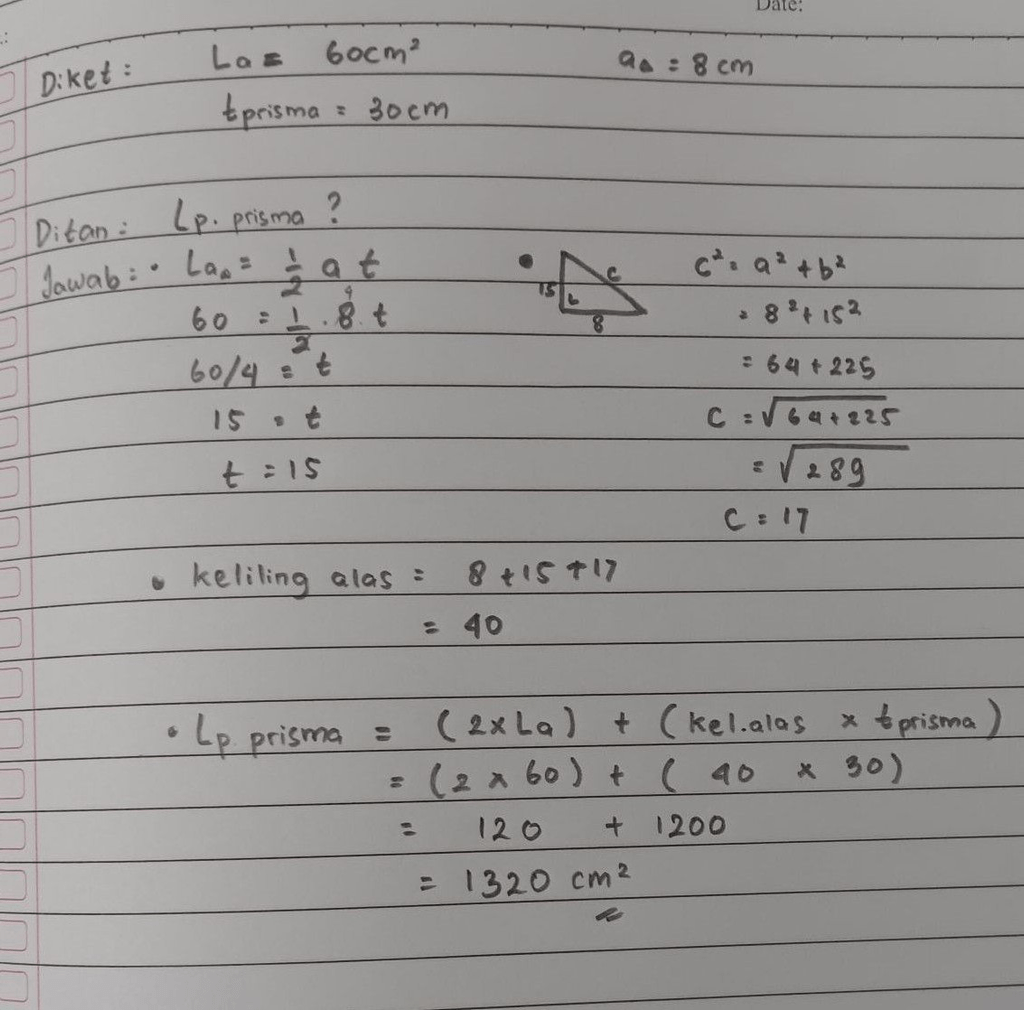 Date:
Diket : La = 60cm² a△ = 8 cm
tprisma = 30cm
Ditan : Lp. prisma ?
Jawab : • La△ = 1/2 a t • 15 c 8 c² = a² + b²
60 = 1/2 . 8 4 . t = 8² + 15²
60/4 = t = 64 + 225
15 = t C = √64+225
t = 15 = √289
C = 17
• keliling alas = 8 + 15 + 17
= 40
• Lp. prisma = (2 x La) + (kel.alas x tprisma)
= (2 x 60) + ( 40 x 30)
= 120 + 1200
= 1320 cm²